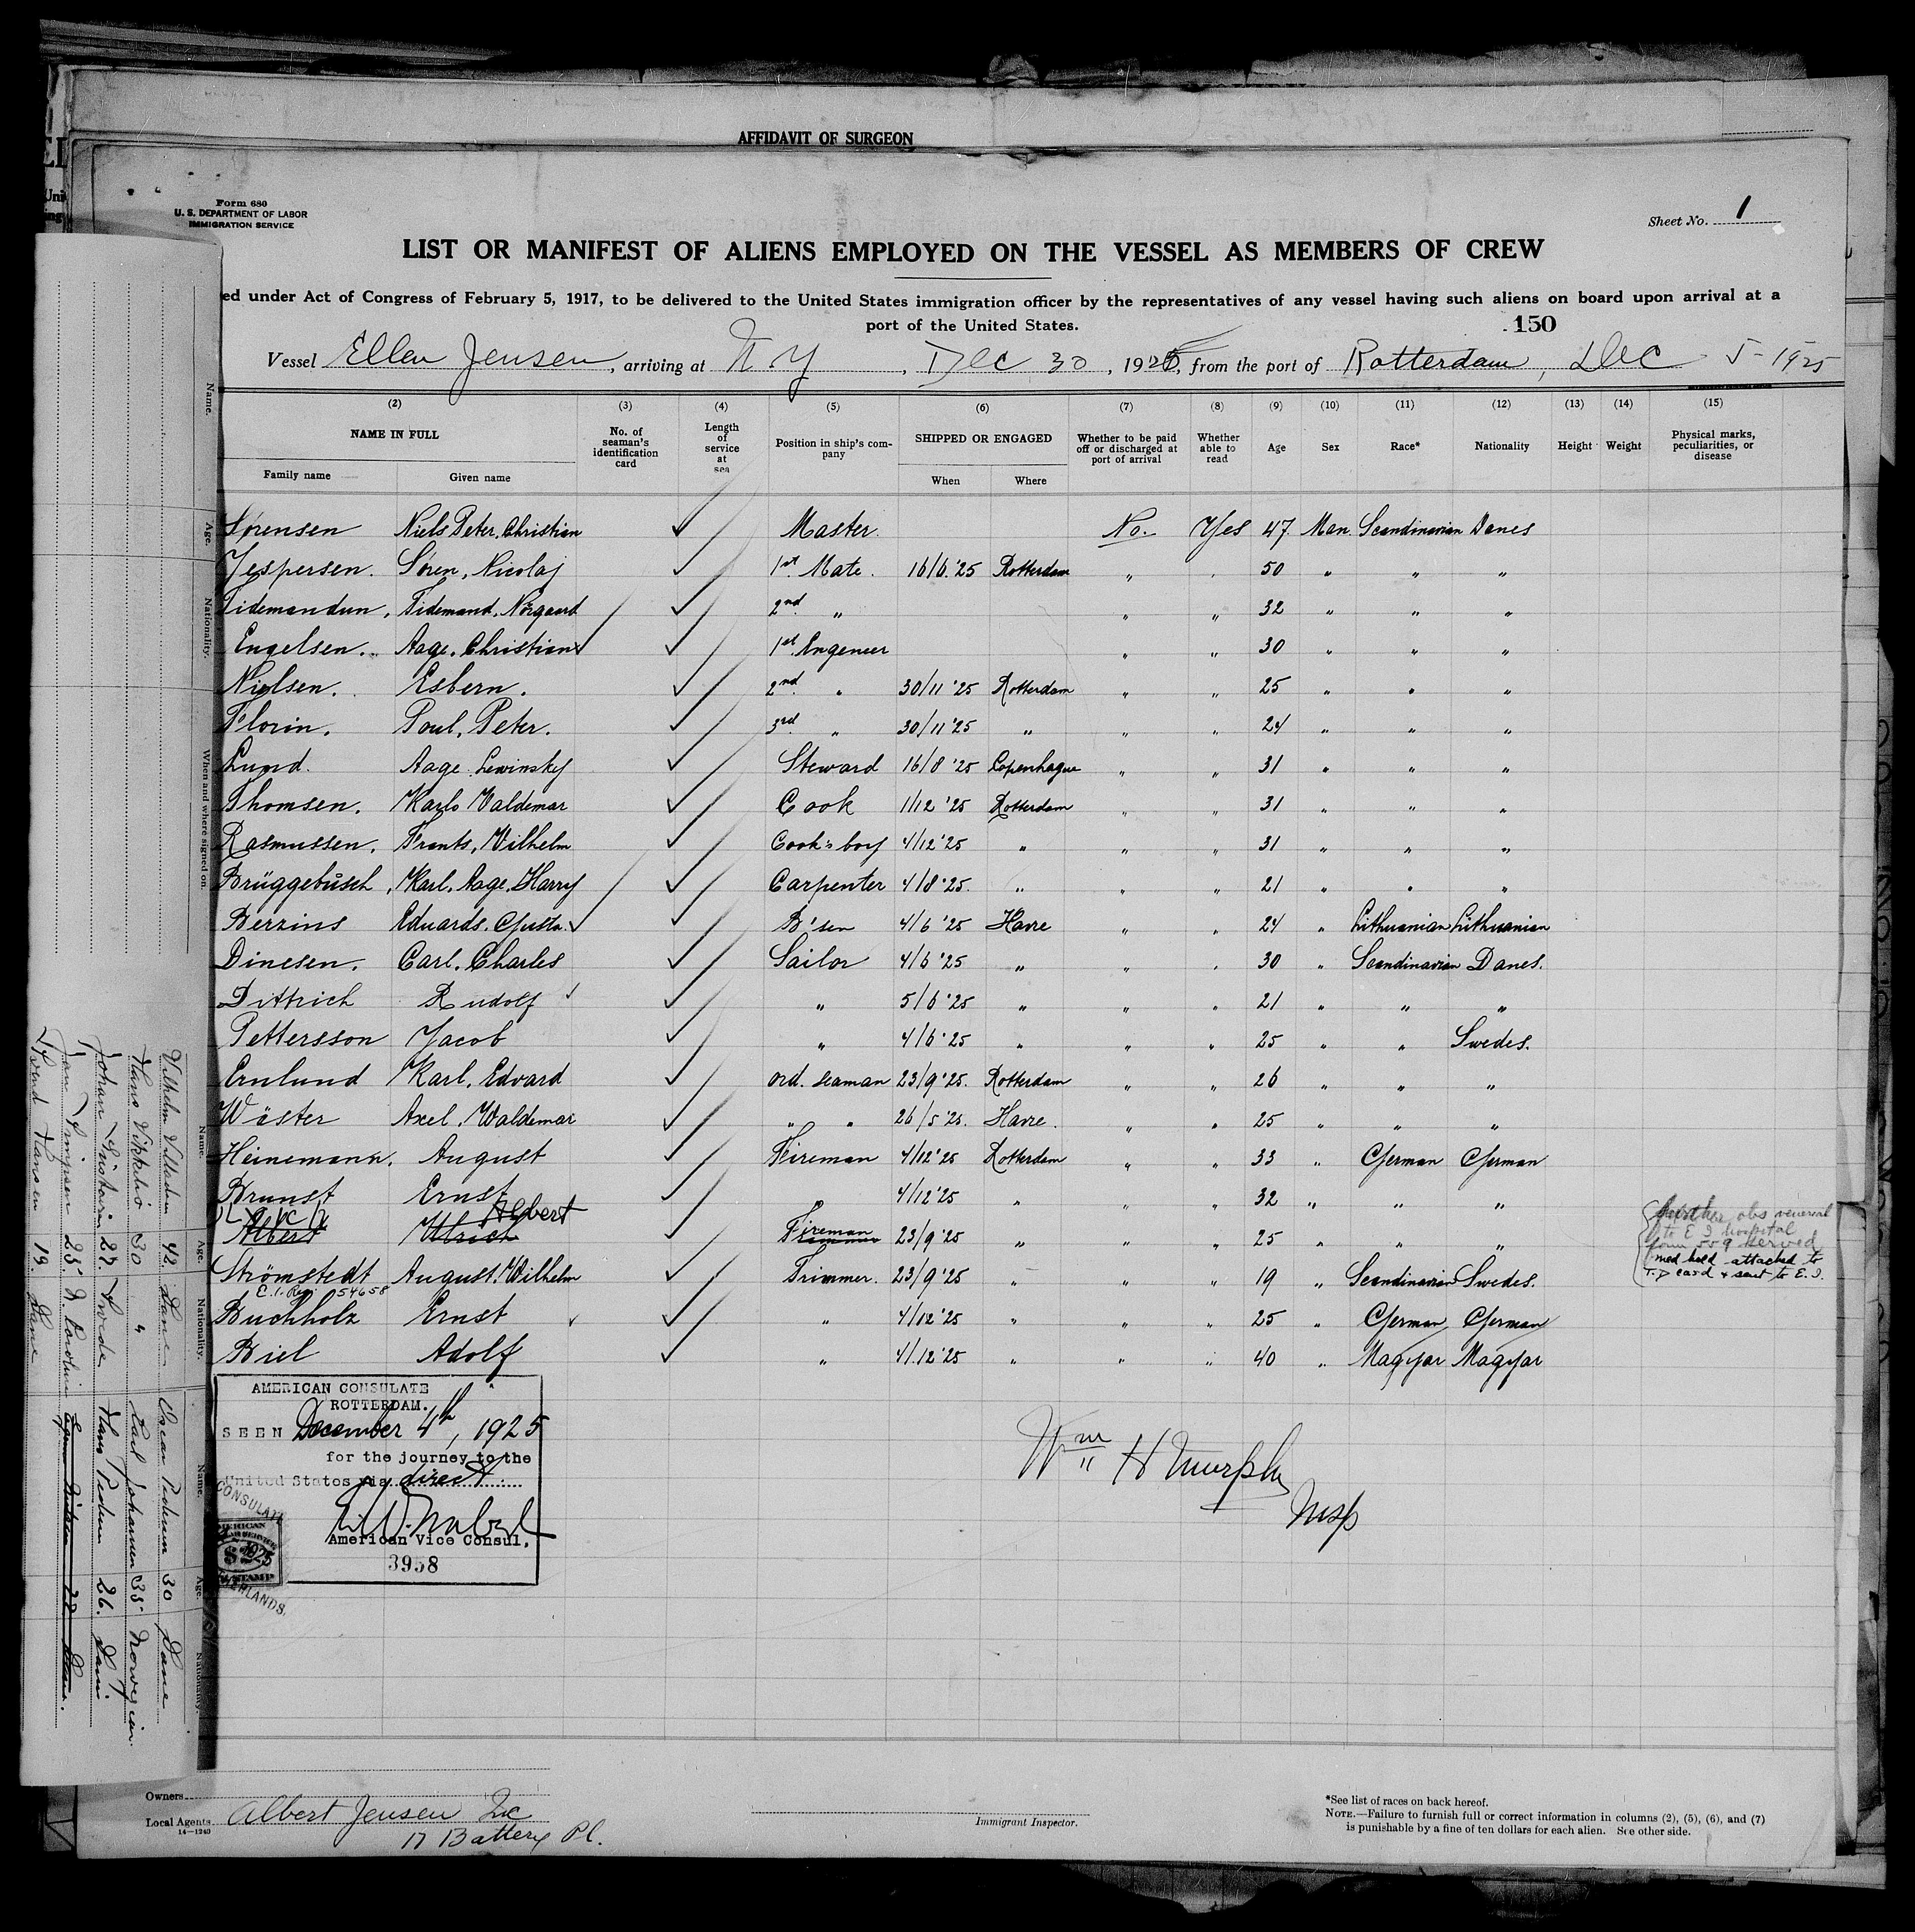 AFFIDAVIT OF SURGEON
Form 680
U. S. DEPARTMENT OF LABOR
IMMIGRATION SERVICE
Sheet No. 1
LIST OR MANIFEST OF ALIENS EMPLOYED ON THE VESSEL AS MEMBERS OF CREW
ed under Act of Congress of February 5, 1917, to be delivered to the United States immigration officer by the representatives of any vessel having such aliens on board upon arrival at a
port of the United States.
150
Vessel Ellen Jensen, arriving at N.Y, Dec 30, 1925, from the port of Rotterdam, Dec 5 - 1925
(2) (3) (4) (5) (6) (7) (8) (9) (10) (11) (12) (13) (14) (15)
NAME IN FULL
Family name Given name
No. of seaman's identification card
Length of service at sea
Position in ship's company
SHIPPED OR ENGAGED
When Where
Whether to be paid off or discharged at port of arrival
Whether able to read
Age Sex Race* Nationality Height Weight
Physical marks, peculiarities, or disease
Sørensen Niels Peter. Christian Master. No. Yes 47. Man. Scandinavian Danes
Jespersen. Søren, Nicolaj 1st Mate. 16/6.'25 Rotterdam " " 50 " " "
Tidemandun, Tidemand, Nørgaard 2nd " " " 32 " " "
Engelsen. Aage. Christian 1st Engeneer " " 30 " " "
Nielsen. Esbern. 2nd " 30/11 '25 Rotterdam " " 25 " " "
Florin. Poul, Peter. 3rd " 30/11 '25 " " " 24 " " "
Lund. Aage Lewinsky Steward 16/8 '25 Copenhague " " 31 " " "
Thomsen. Karlo Valdemar Cook 1/12 '25 Rotterdam " " 31 " " "
Rasmussen. Frants, Vilhelm Cook's boy 4/12 '25 " " " 31 " " "
Brüggebüsch, Karl. Aage. Harry Carpenter 4/8 '25. " " " 21 " " "
Berzins Eduards. Gusta. B'sen 4/6 '25 Havre " " 24 " Lithuanian Lithuanian
Dinesen. Carl. Charles Sailor 4/6 '25 " " " 30 " Scandinavian Danes.
Dittrich Rudolf " 5/6 '25 " " " 21 " " "
Pettersson Jacob " 4/6 '25 " " " 25 " " Swedes.
Ernlund Karl, Edvard ord. seaman 23/9 '25. Rotterdam " " 26 " " "
Wäster Axel. Waldemar " " 26/5 '25. Havre. " " 25 " " "
Heinemann. August Fireman 4/12 '25 Rotterdam " " 33 " German German
Brunst Ernst 4/12 '25 " " " 32 " " "
Albert Ulrich Albert Fireman 23/9 '25 " " " 25 " " "
Strømstedt August. Wilhelm Trimmer. 23/9 '25 " " " 19 " Scandinavian Swedes.
E.I. Reg. 54658
Buchholz Ernst " 4/12 '25 " " " 25 " German German
Biel Adolf " 4/12 '25 " " " 40 " Magyar Magyar
further obs venereal
to E I hospital
form 559 served
med held attached to
T.D card & sent to E.I.
AMERICAN CONSULATE
ROTTERDAM.
SEEN December 4th, 1925
for the journey to the
United States via direct
American Vice Consul.
3958
CONSULATE
Wm H Murphy
Insp
Name. Age. Nationality. When and where signed on.
Name. Age. Nationality. Name. Age. Nationality.
42. Dane Oscar Pedersen 30 Dane
Hans 30 " Carl Johansen 35 Norwegian.
Johan 27. Swede Hans Pedersen 26. Dane.
25
Svend Hansen 19. Dane
Owners
Local Agents Albert Jensen Inc
17 Battery Pl.
14—1243
Immigrant Inspector.
*See list of races on back hereof.
NOTE.—Failure to furnish full or correct information in columns (2), (5), (6), and (7)
is punishable by a fine of ten dollars for each alien. See other side.